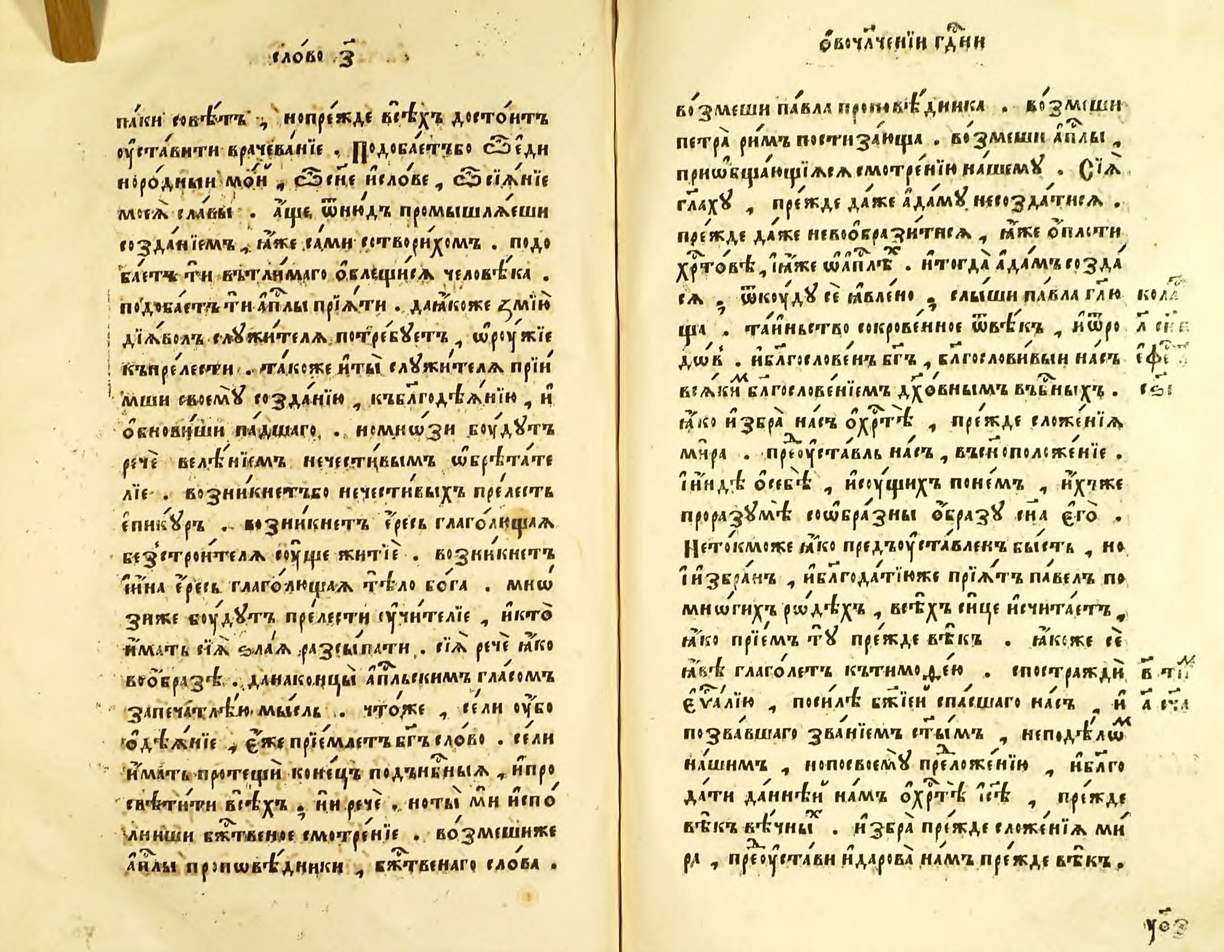 сло́во з҃
па́ки совѣ́тъ , нопре́жде всѣ́хъ досто́итъ
оу҆ста́вити врачева́нїе . Подоба́етъбо ѿе҆ди
норо́дныи мо́й , ѿсне и҆сло́ве , ѿсїѧ́нїе
моеѧ̀ сла́вы . а҆́ще ѿнидъ промышлѧ́еши
созда́нїемъ , ꙗ҆́же са́ми сотвори́хомъ . подо
ба́етъ ти вътлима́го ѡ҆блещи́сѧ человѣ́ка .
подоба́етъ ти а҆пⷭ҇лы прїѧ́ти . даꙗ́коже ѕмїю
дїѧ́волъ служи́телѧ потре́буетъ , ѡ҆роу́жїе
къпре́лести . та́коже и҆ты̀ служи́телѧ прїи
мши своемꙋ̀ созда́нїю , къблагодѣѧ́нїю , и҆
ѡ҆бнови́ши па́дшаго . номно́зи бо́удꙋтъ
речѐ велѣ́нїемъ нечести́вымъ ѡ҆брѣта́те
лїе . возни́кнетъбо нечести́выхъ пре́лесть
е҆пикꙋ́ръ . возни́кнетъ є҆́ресь глаго́лющаѧ
безстрои́телѧ соу́ще житїѐ . возни́кнетъ
и҆и́на є҆́ресь глаго́лющаѧ тѣ́ло бо́га . мно́
зиже бо́удꙋтъ пре́лести оу҆чи́телїе , и҆кто̀
и҆́мать сїѧ̀ ѕла́ѧ разсы́пати . сїѧ̀ речѐ ꙗ҆́ко
воѡ҆́бразѣ . данаконцы̀ а҆пⷭ҇льскимъ гла́сомъ
запеча́тлѣю мы́сль . что́же , се́ли оу҆́бо
ѡ҆дѣѧ́нїе , є҆́же прїе́млетъ бг҃ъ сло́во . се́ли
и҆́мать протещѝ коне́цъ поднбⷭ҇ныѧ , и҆про
свѣти́ти всѣ́хъ , ни речѐ ,ноты̀ мѝ и҆спо́
лниши бжⷭ҇твеное смотре́нїе . во́змешиже
а҆пⷭ҇лы проповѣ́дники , бжⷭ҇твенаго сло́ва .
ѡ҆вочл҃че́нїи гдⷭ҇ни
во́змеши па́вла проповѣ́дника . во́змеши
петра̀ ри́мъ постиза́юща . во́змеши а҆пⷭ҇лы ,
прїѡбща́ющїѧсѧ смотре́нїю на́шемꙋ . Сїѧ̀
гл҃ахꙋ , пре́жде да́же а҆да́мꙋ несозда́тисѧ .
пре́жде да́же невоѡ҆брази́тисѧ , ꙗ҆́же ѡ҆пло́ти
хрⷭ҇то́вѣ , ꙗ҆́же ѡ҆а҆пⷭ҇лѣⷯ . и҆тогда̀ а҆да́мъ созда́
сѧ , ѿкоу́дꙋ сѐ ꙗ҆вле́но , слы́ши па́вла гл҃ю
ща . та́иньство сокрове́нное ѿвѣ́къ , и҆ѿро
до́въ . и҆благослове́нъ бг҃ъ , благослови́выи на́съ
всѧ́киⷨ благослове́нїемъ дх҃о́внымъ внбⷭ҇ныхъ .
ꙗ҆́ко и҆збра̀ на́съ ѡ҆хрⷭ҇тѣ̀ , пре́жде сложе́нїѧ
ми́ра . преⷣоуста́вль на́съ , въсноположе́нїе .
и҆и́ндѣ ѡ҆себѣ̀ , и҆соу́щихъ поне́мъ , и҆́хъже
проразꙋмѣ̀ соѡ҆бра́зны ѡ҆́бразꙋ сн҃а є҆гѡ̀ .
Нето́кможе ꙗ҆́ко предъоуста́вленъ бы́сть , но
и҆и҆збра́нъ , и҆благода́тїюже прїѧ́тъ па́велъ по
мно́гихъ ро́дѣхъ , всѣ́хъ си́це и҆счита́етъ ,
ꙗ҆́ко прїе́мъ тꙋ̀ пре́жде вѣ́къ . ꙗ҆́коже сѐ
ꙗ҆́вѣ глаго́летъ къtимоѳе́ю . спостраждѝ
є҆ѵⷢ҇а́лїю , поси́лѣ бж҃їей спа́сшаго на́съ , и҆
позва́вшаго зва́нїемъ ст҃ы́мъ , неподѣ́лѡⷨ
на́шимъ , нопосвоемꙋ̀ преⷣложе́нїю , и҆благо
да́ти да́ннѣй на́мъ ѡ҆хрⷭ҇тѣ̀ і҆с҃ѣ , пре́жде
вѣ́къ вѣ́чныⷯ . и҆збра̀ пре́жде сложе́нїѧ ми́
ра , преⷣоуста́ви и҆дарова̀ на́мъ пре́жде вѣ́къ .